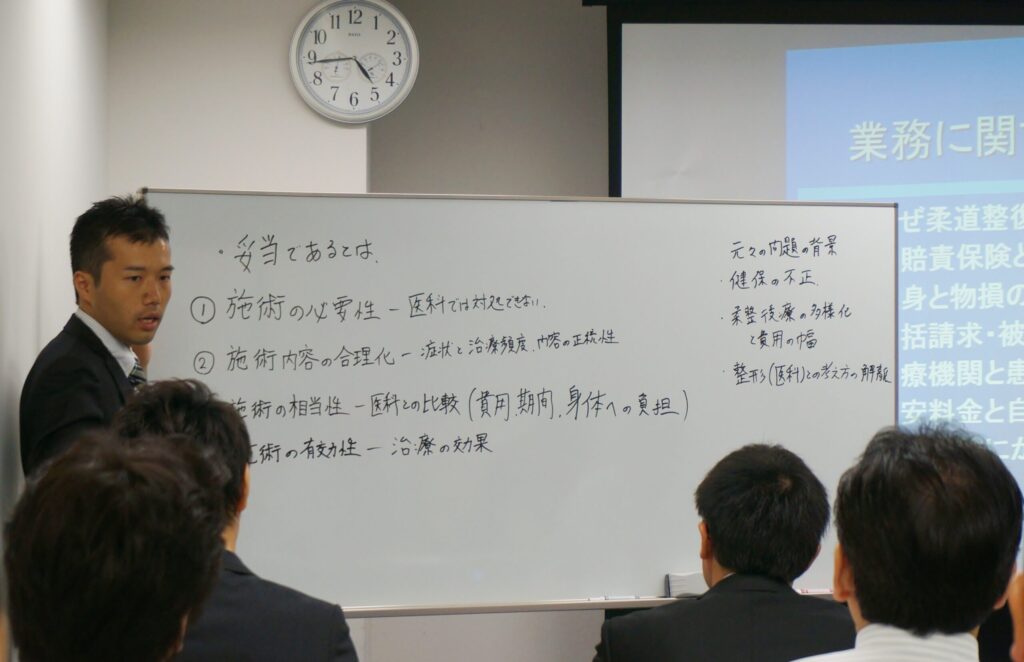 12
11 1
10 2
9 3
8 4
7 5
6
業務に関
ぜ柔道整復
賠責保険と
身と物損の
括請求・被
療機関と患
安料金と自
にか
・妥当であるとは、
① 施術の必要性 − 医科では対処できない.
② 施術内容の合理化 − 症状と治療頻度、内容の正確性
施術の相当性 − 医科との比較(費用、期間、身体への負担)
術の有効性 − 治療の効果
元々の問題の背景
・健保の不正.
・柔整後療の多様化
と費用の幅
・整形(医科)との考え方の解離